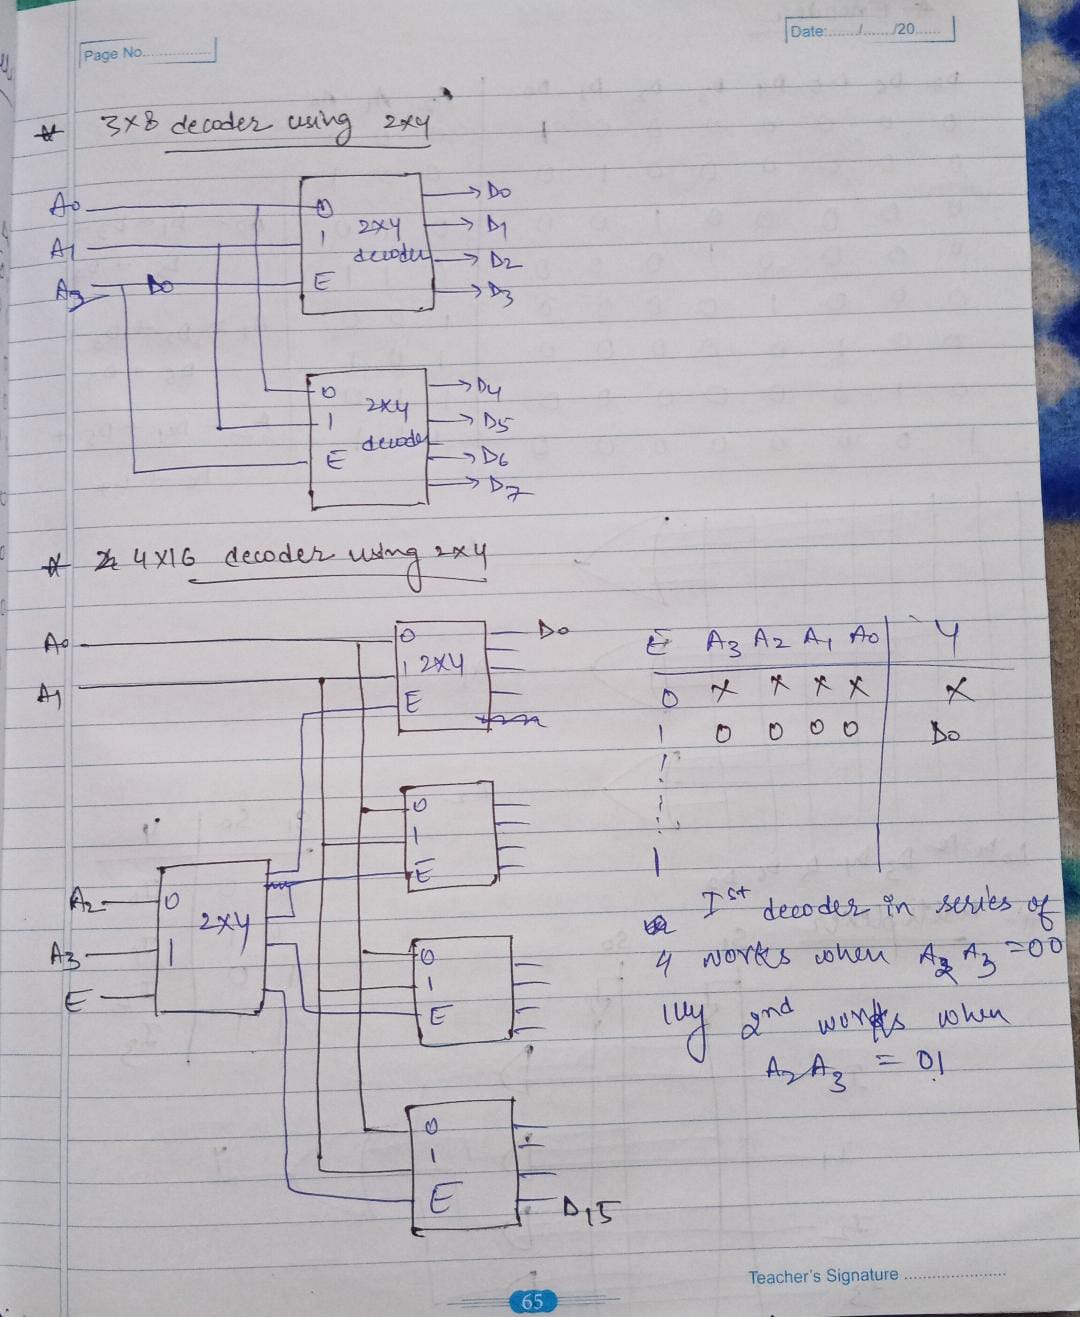 Page No.
Date: / /20
* 3x8 decoder using 2x4
A0
A1
A3 D0
0
1
E
2x4
decoder
D0
D1
D2
D3
0
1
E
2x4
decoder
D4
D5
D6
D7
* 4x16 decoder using 2x4
A0
A1
0
1 2x4
E
D0
0
1
E
A2
A3
E
0
1
2x4
0
1
E
0
1
E
D15
E A3 A2 A1 A0 Y
0 x x x x x
1 0 0 0 0 D0
1
Ist decoder in series of
4 works when A2 A3 = 00
lly 2nd works when
A2 A3 = 01
Teacher's Signature
65